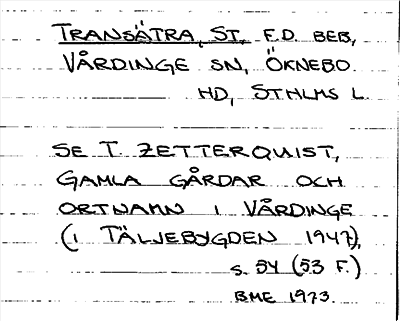 TRANSÄTRA, ST, F.D. BEB,
VÅRDINGE SN, ÖKNEBO
HD, STHLMS L.
SE T. ZETTERQUIST,
GAMLA GÅRDAR OCH
ORTNAMN I VÅRDINGE
(I TÄLJEBYGDEN 1947),
S. 54 (53 F.)
BME 1973.